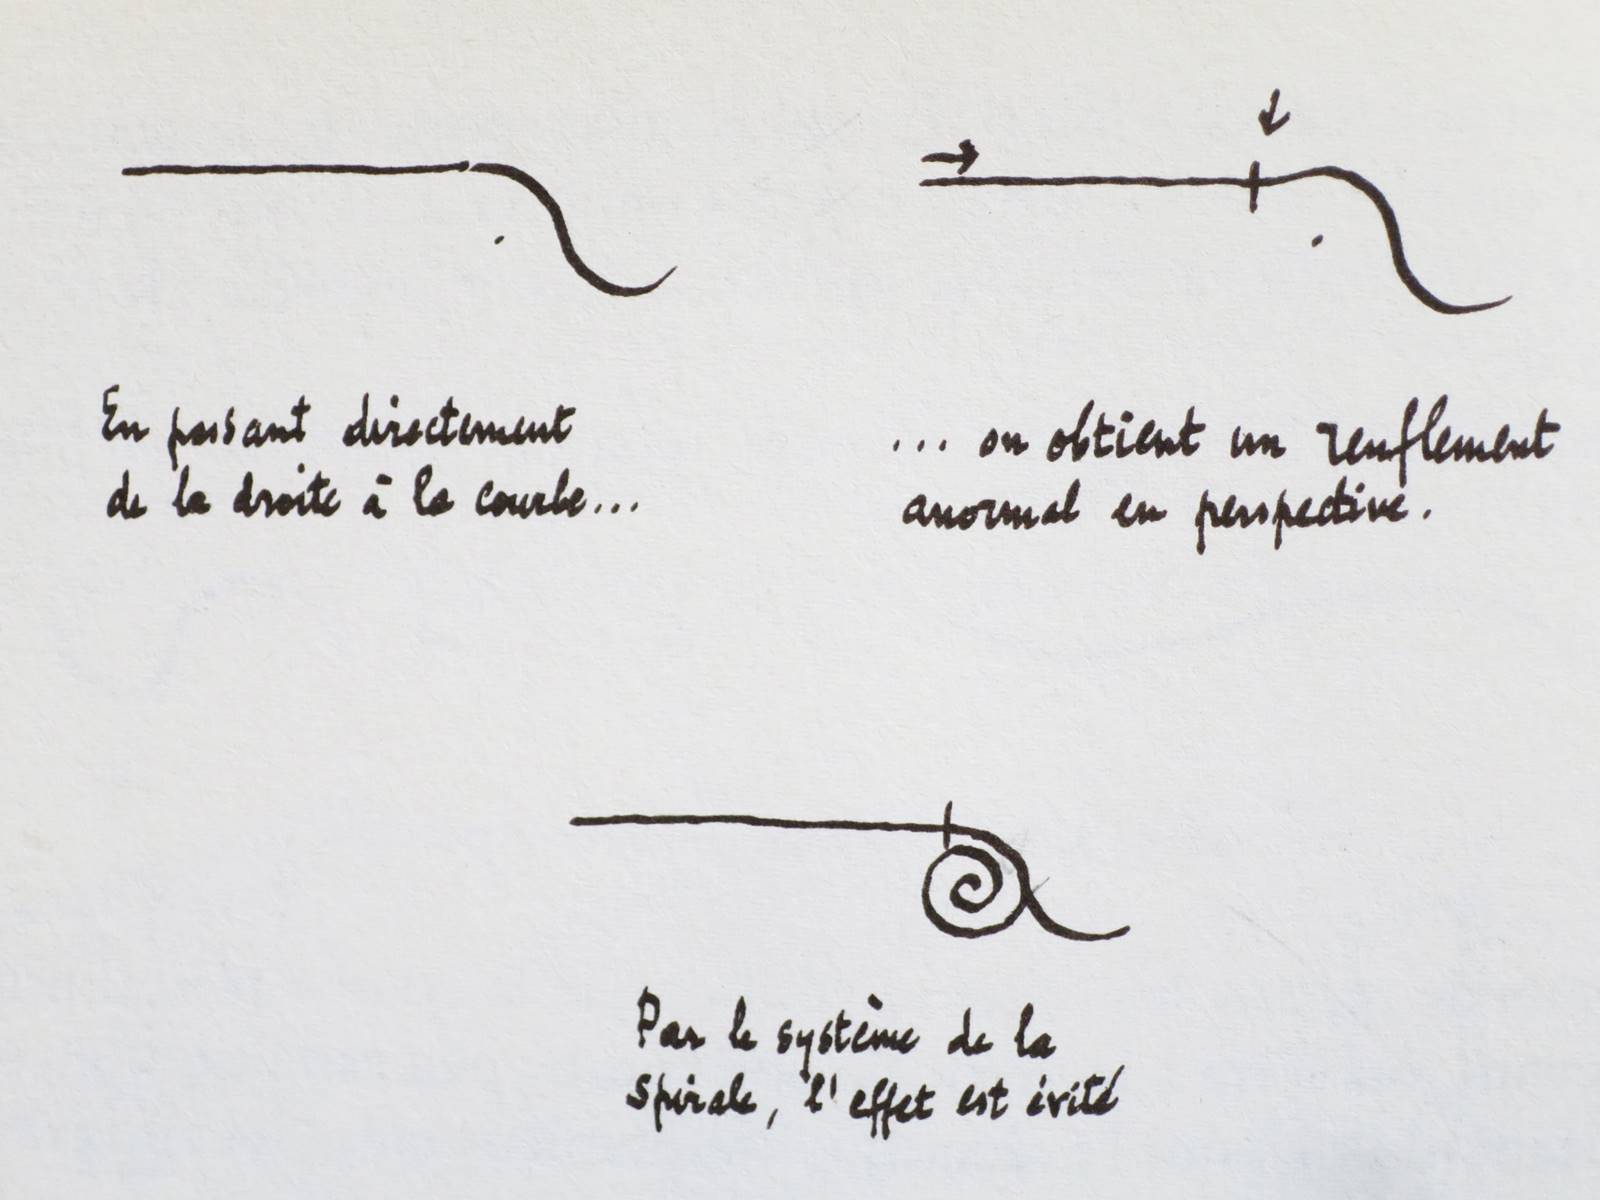 En passant directement
de la droite à la courbe...
... on obtient un renflement
anormal en perspective.
Par le système de la
spirale, l'effet est évité